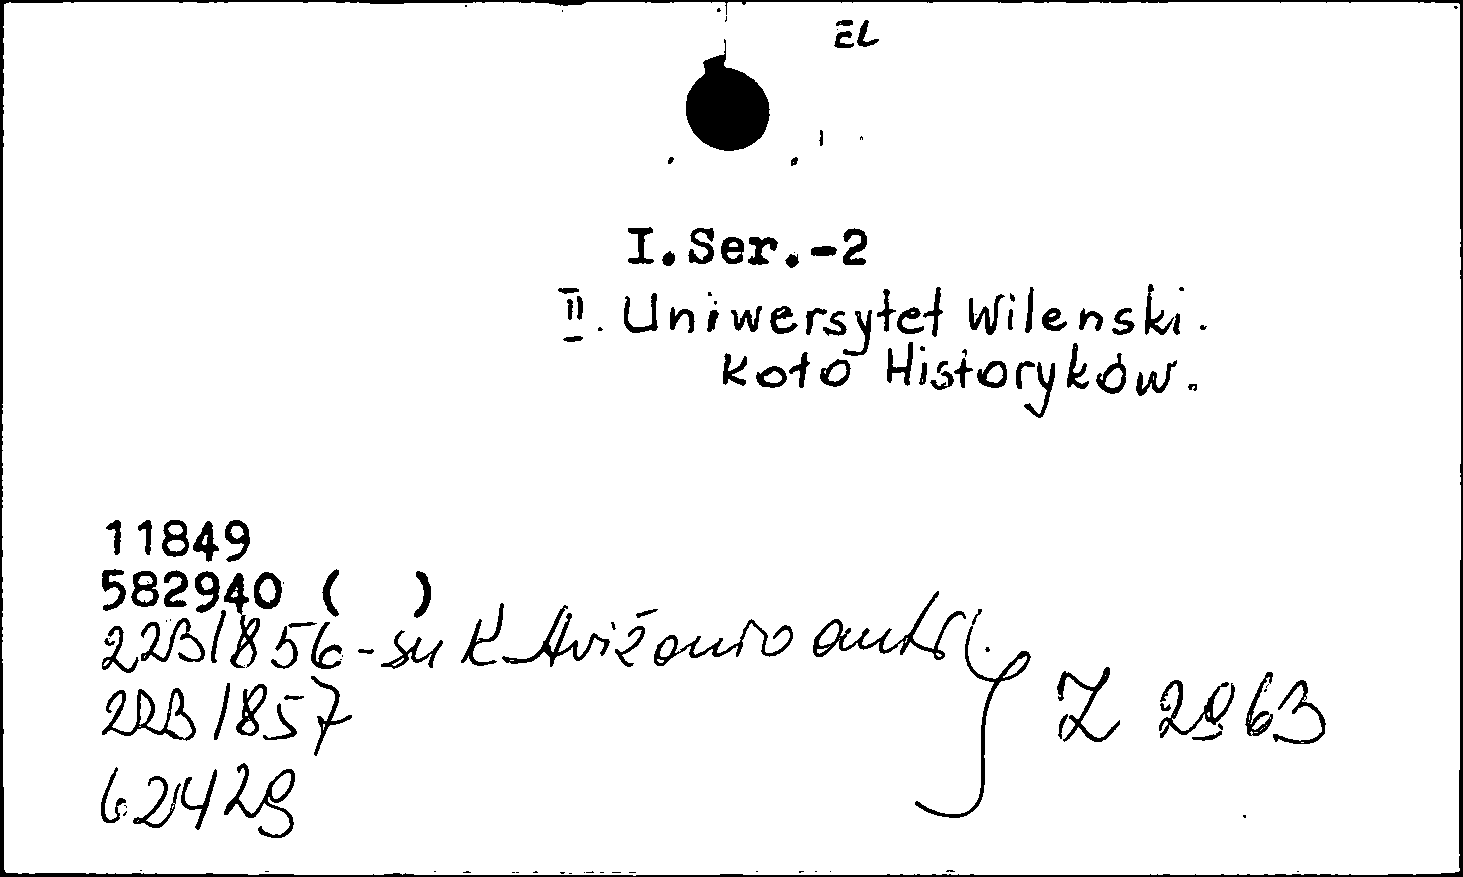 EL
I.Ser.-2
II. Uniwersytet Wilenski.
Koło Historyków.
11849
582940 ( )
22B/856-su K. Avižonio antr.
22B/857
62429
Z 2963